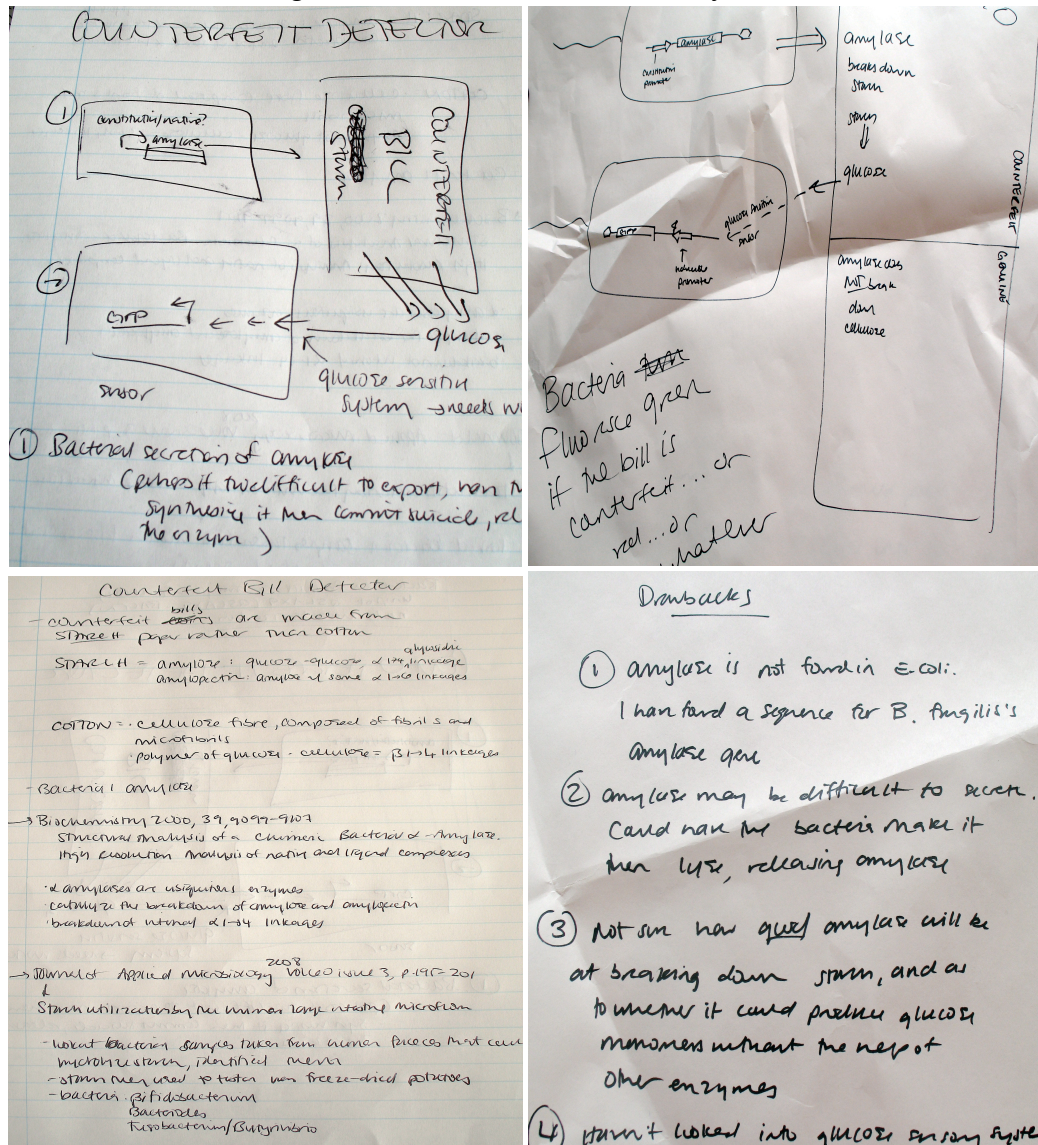 COUNTERFEIT DETECTOR
①
constitutive/native?
amylase
COUNTERFEIT
BILL
starch
②
GFP
glucose
sensor
glucose sensitive
system → needs
① Bacterial secretion of amylase
(perhaps if too difficult to export, have
synthesize it then commit suicide,
the enzyme)
amylase
constitutive
promoter
amylase
breaks down
starch
starch
⇓
glucose
COUNTERFEIT
glucose sensitive
sensor
GFP
inducible
promoter
GENUINE
amylase does
NOT break
down
cellulose
Bacteria
fluoresce green
if the bill is
counterfeit... or
red... or
whatever
Counterfeit Bill Detector
- counterfeit bills are made from
STARCH paper rather than cotton
STARCH = amylose: glucose-glucose, α 1→4 glycosidic linkage
amylopectin: amylose w some α 1→6 linkages
COTTON = · cellulose fibre, composed of fibrils and
microfibrils
· polymer of glucose - cellulose = β 1→4 linkages
- Bacterial amylase
→ Biochemistry 2000, 39, 9099-9107
Structural Analysis of a Chimeric Bacterial α-Amylase.
High Resolution Analysis of native and ligand complexes
· α amylases are ubiquitous enzymes
· catalyze the breakdown of amylose and amylopectin
· breakdown of internal α 1→4 linkages
→ Journal of Applied Microbiology 2008 issue 3, p. 195-201
Starch utilization by the human large intestine microflora
- bacteria samples taken from human faeces that could
starch, identified them
- starch they used to test was freeze-dried potatoes
- bacteria: Bifidobacterium
Bacteroides
Fusobacterium/Butyrivibrio
Drawbacks
① amylase is not found in E-coli.
I have found a sequence for B. fragilis's
amylase gene
② amylase may be difficult to secrete.
Could have the bacteria make it
then lyse, releasing amylase
③ Not sure how good amylase will be
at breaking down starch, and as
to whether it could produce glucose
monomers without the help of
other enzymes
④ Haven't looked into glucose sensory